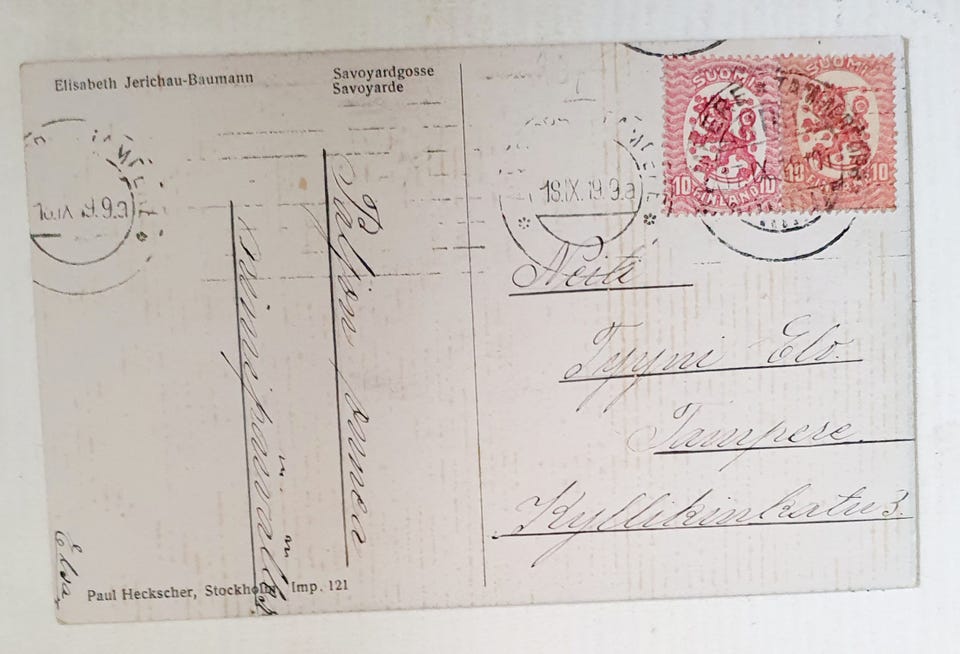 Elisabeth Jerichau-Baumann
Savoyardgosse
Savoyarde
Paljon onnea
nimipäivälle
Elsa
Paul Heckscher, Stockholm, Imp. 121
18.IX.19.9.
SUOMI
10 10
FINLAND
SUOMI
10
18.IX.19.9.
Neiti
Tyyni Elo.
Tampere
Kyllikinkatu 3.